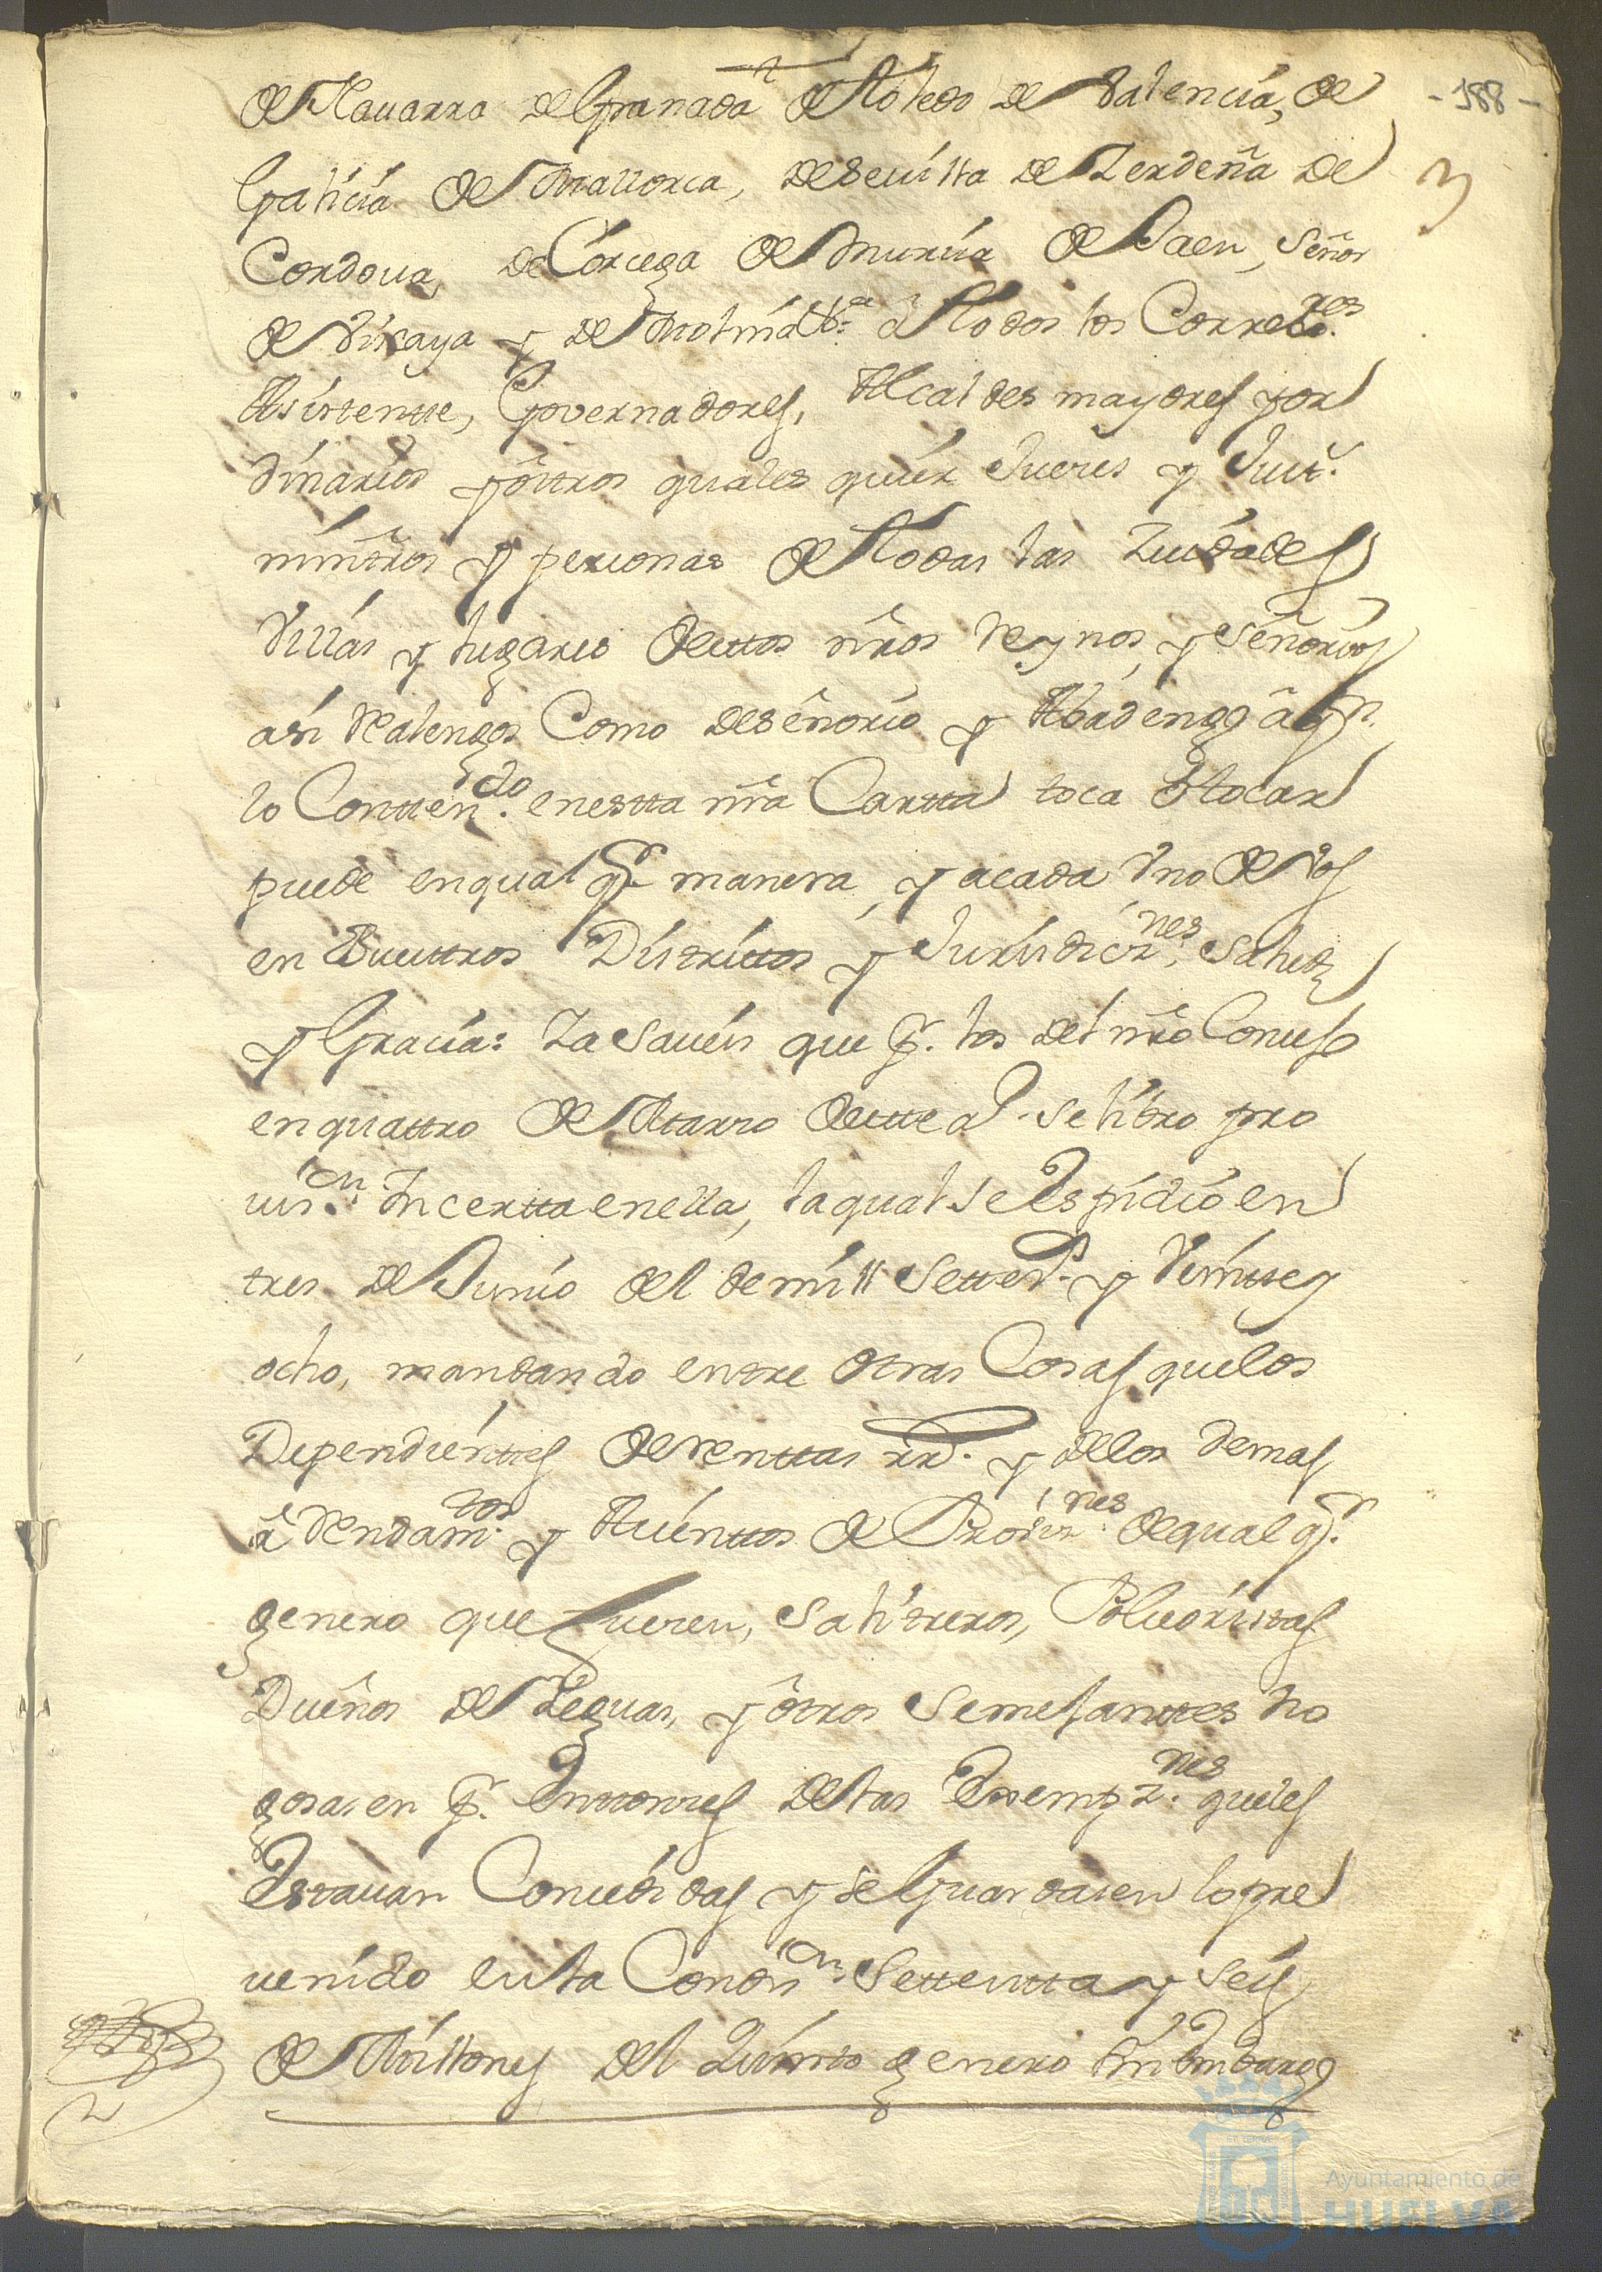 de Navarra de Granada de Toledo de Valencia, de
- 188 -
Galicia de Mallorca, de Sevilla de Zerdeña de
3
Cordova, de Corcega de Murcia de Jaen, Señor
de Vizcaya y de Molina &ª a todos los Correxres
Asistentte, Governadores, Alcaldes mayores y or
dinarios y ôttros quales quier Jueces y Just.
ministros y personas de todas las Ziudades
Villas y lugares desttos nr̃os Reynos, y señorios
asi Realengos Como de señorio y Abadengo â qn.
lo Conttendo. en estta nr̃a Cartta toca ô tocar
puede en qual qr. manera, y a cada Uno de Vos
en Vuesttros Disttrittos y Jurisdiciznes. Salud
y Gracia: Ya saveis que pr. los del nr̃o Consejo
en quattro de Marzo destte a. se libro pro
uisn. Incertta en ella, la qual se Espidio en
tres de Junio del de mill Setteds. y Veintte y
ocho, mandando entre otras Cosas que los
Dependienttes de Renttas RRs. y de los demas
â Rendamtos. y Asienttos de Provisznes. de qual qr.
genero que fuesen, Salitreros, Polvoristas
Dueños de Yeguas, y ôtros Semejanttes no
gosasen pr. Enttonces de las Exempznes. que les
Estavan Concedidas y se Guardasen lo pre
uenido en la Condisn. Settentta y Seis
de Millones del Quinto genero sin Embargo
Ayuntamiento de
HUELVA